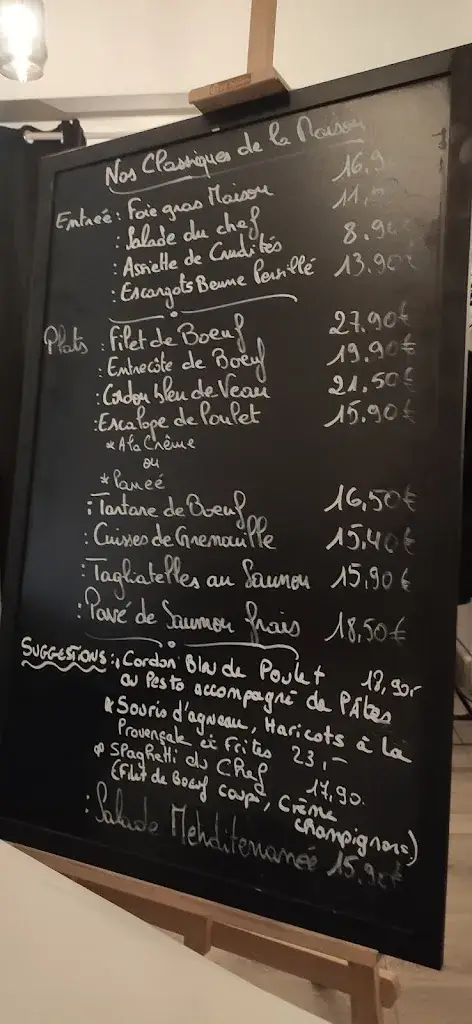 Nos Classiques de la Maison
Entrée : Foie gras Maison 16,9
: Salade du chef 11,
: Assiette de Crudités 8.90
: Escargots Beurre Persillé 13.90€
Plats : Filet de Boeuf 27.90€
: Entrecôte de Boeuf 19.90€
: Cordon bleu de Veau 21.50€
: Escalope de Poulet 15.90€
* A la Crême
ou
* Paneé
: Tartare de Boeuf 16,50€
: Cuisses de Grenouille 15.40€
: Tagliatelles au Saumon 15,90€
: Pavé de Saumon frais 18,50€
SUGGESTIONS : Cordon Bleu de Poulet
au Pesto accompagné de Pâtes
* Souris d'agneau, Haricots à la
Provençale et Frites 23,-
Spaghetti du Chef 17,90.
(Filet de Boeuf coupé, Crème
champignons)
: Salade Mehditerranéé 15.90€